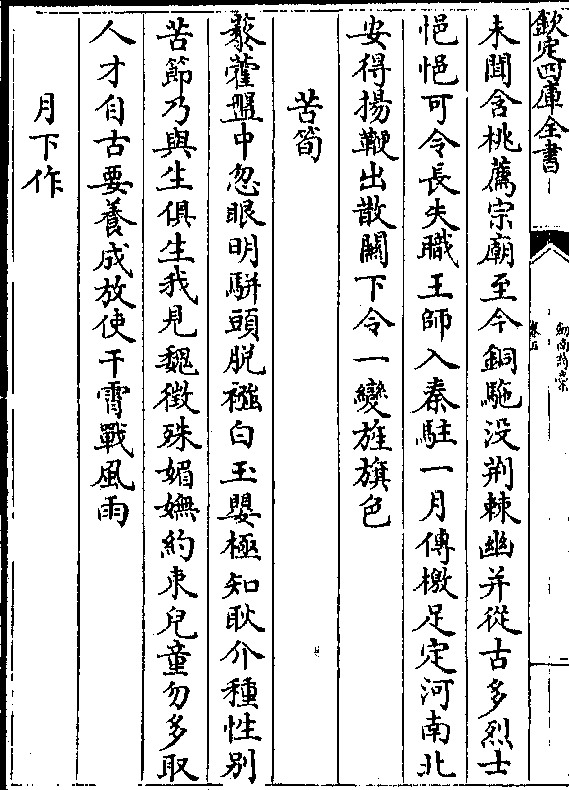 欽定四庫全書
劍南詩稾
卷五
未聞含桃薦宗廟至今銅駞没荆棘幽并從古多烈士
悒悒可令長失職王師入秦駐一月傳檄足定河南北
安得揚鞭出散闗下令一變旌旗色
苦筍
藜藿盤中忽眼明駢頭脱襁白玉嬰極知耿介種性别
苦節乃與生俱生我見魏徴殊媚嫵約束兒童勿多取
人才自古要養成放使干霄戰風雨
月下作